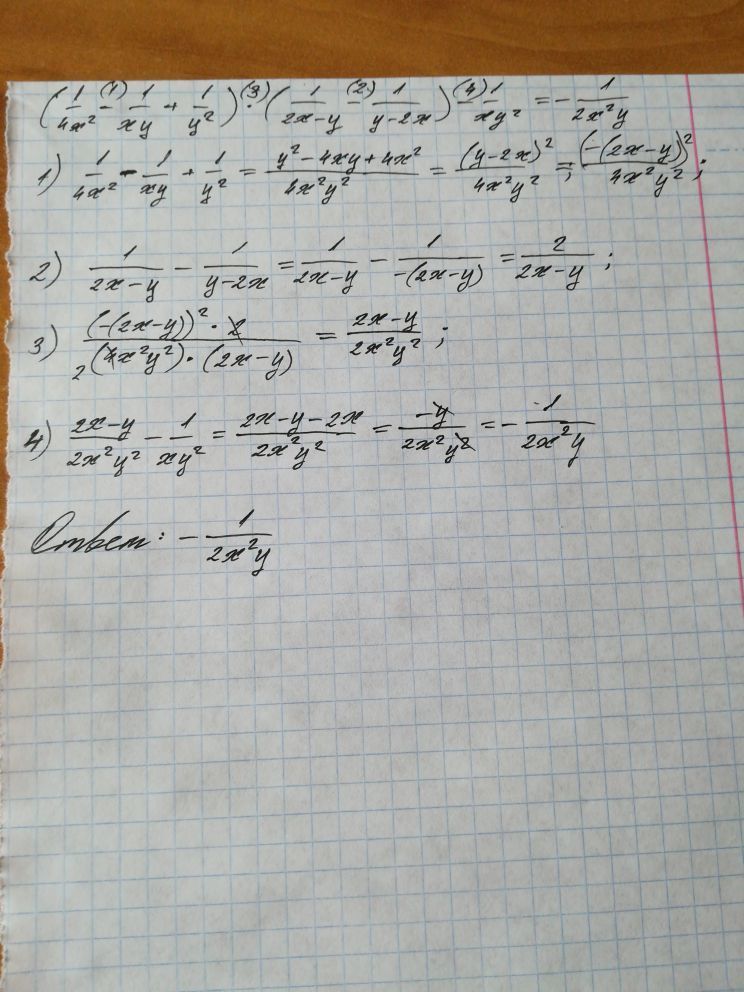 (1/4x² -(1) 1/xy + 1/y²) ·(3) (1/2x-y -(2) 1/y-2x) -(4) 1/xy² = - 1/2x²y
1) 1/4x² - 1/xy + 1/y² = y²-4xy+4x²/4x²y² = (y-2x)²/4x²y² = (-(2x-y))²/4x²y² ;
2) 1/2x-y - 1/y-2x = 1/2x-y - 1/-(2x-y) = 2/2x-y ;
3) (-(2x-y))² · 2/2(4x²y²)·(2x-y) = 2x-y/2x²y² ;
4) 2x-y/2x²y² - 1/xy² = 2x-y-2x/2x²y² = -y/2x²y² = - 1/2x²y
Ответ: - 1/2x²y